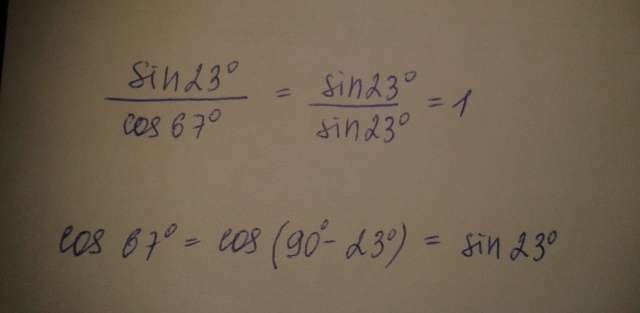 sin23° / cos 67° = sin23° / sin23° = 1
cos 67° = cos (90° - 23°) = sin 23°